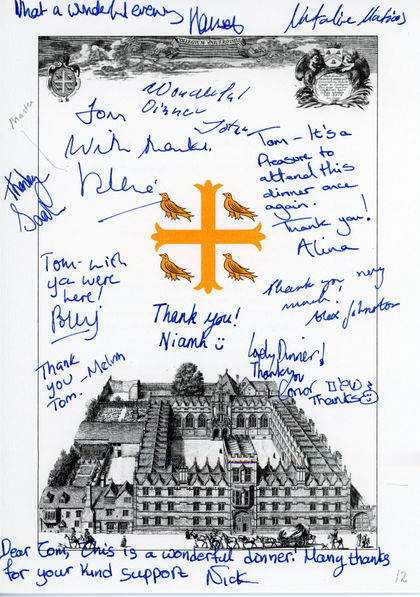 What a wonderful evening
Hannah
Natalie
Wonderful
Dinner
Tom
With thanks.
Master
Tom - It's a
Pleasure to
attend this
dinner once
again.
Thank you!
Alina
Tom - wish
you were
here!
Thank you very
much!
Alex Johnston
Thank you!
Niamh
Thank
you - Melvin
Tom.
Lovely Dinner!
Thank you
Conor
Thanks
Dear Tom, this is a wonderful dinner! Many thanks
for your kind support Nick
12